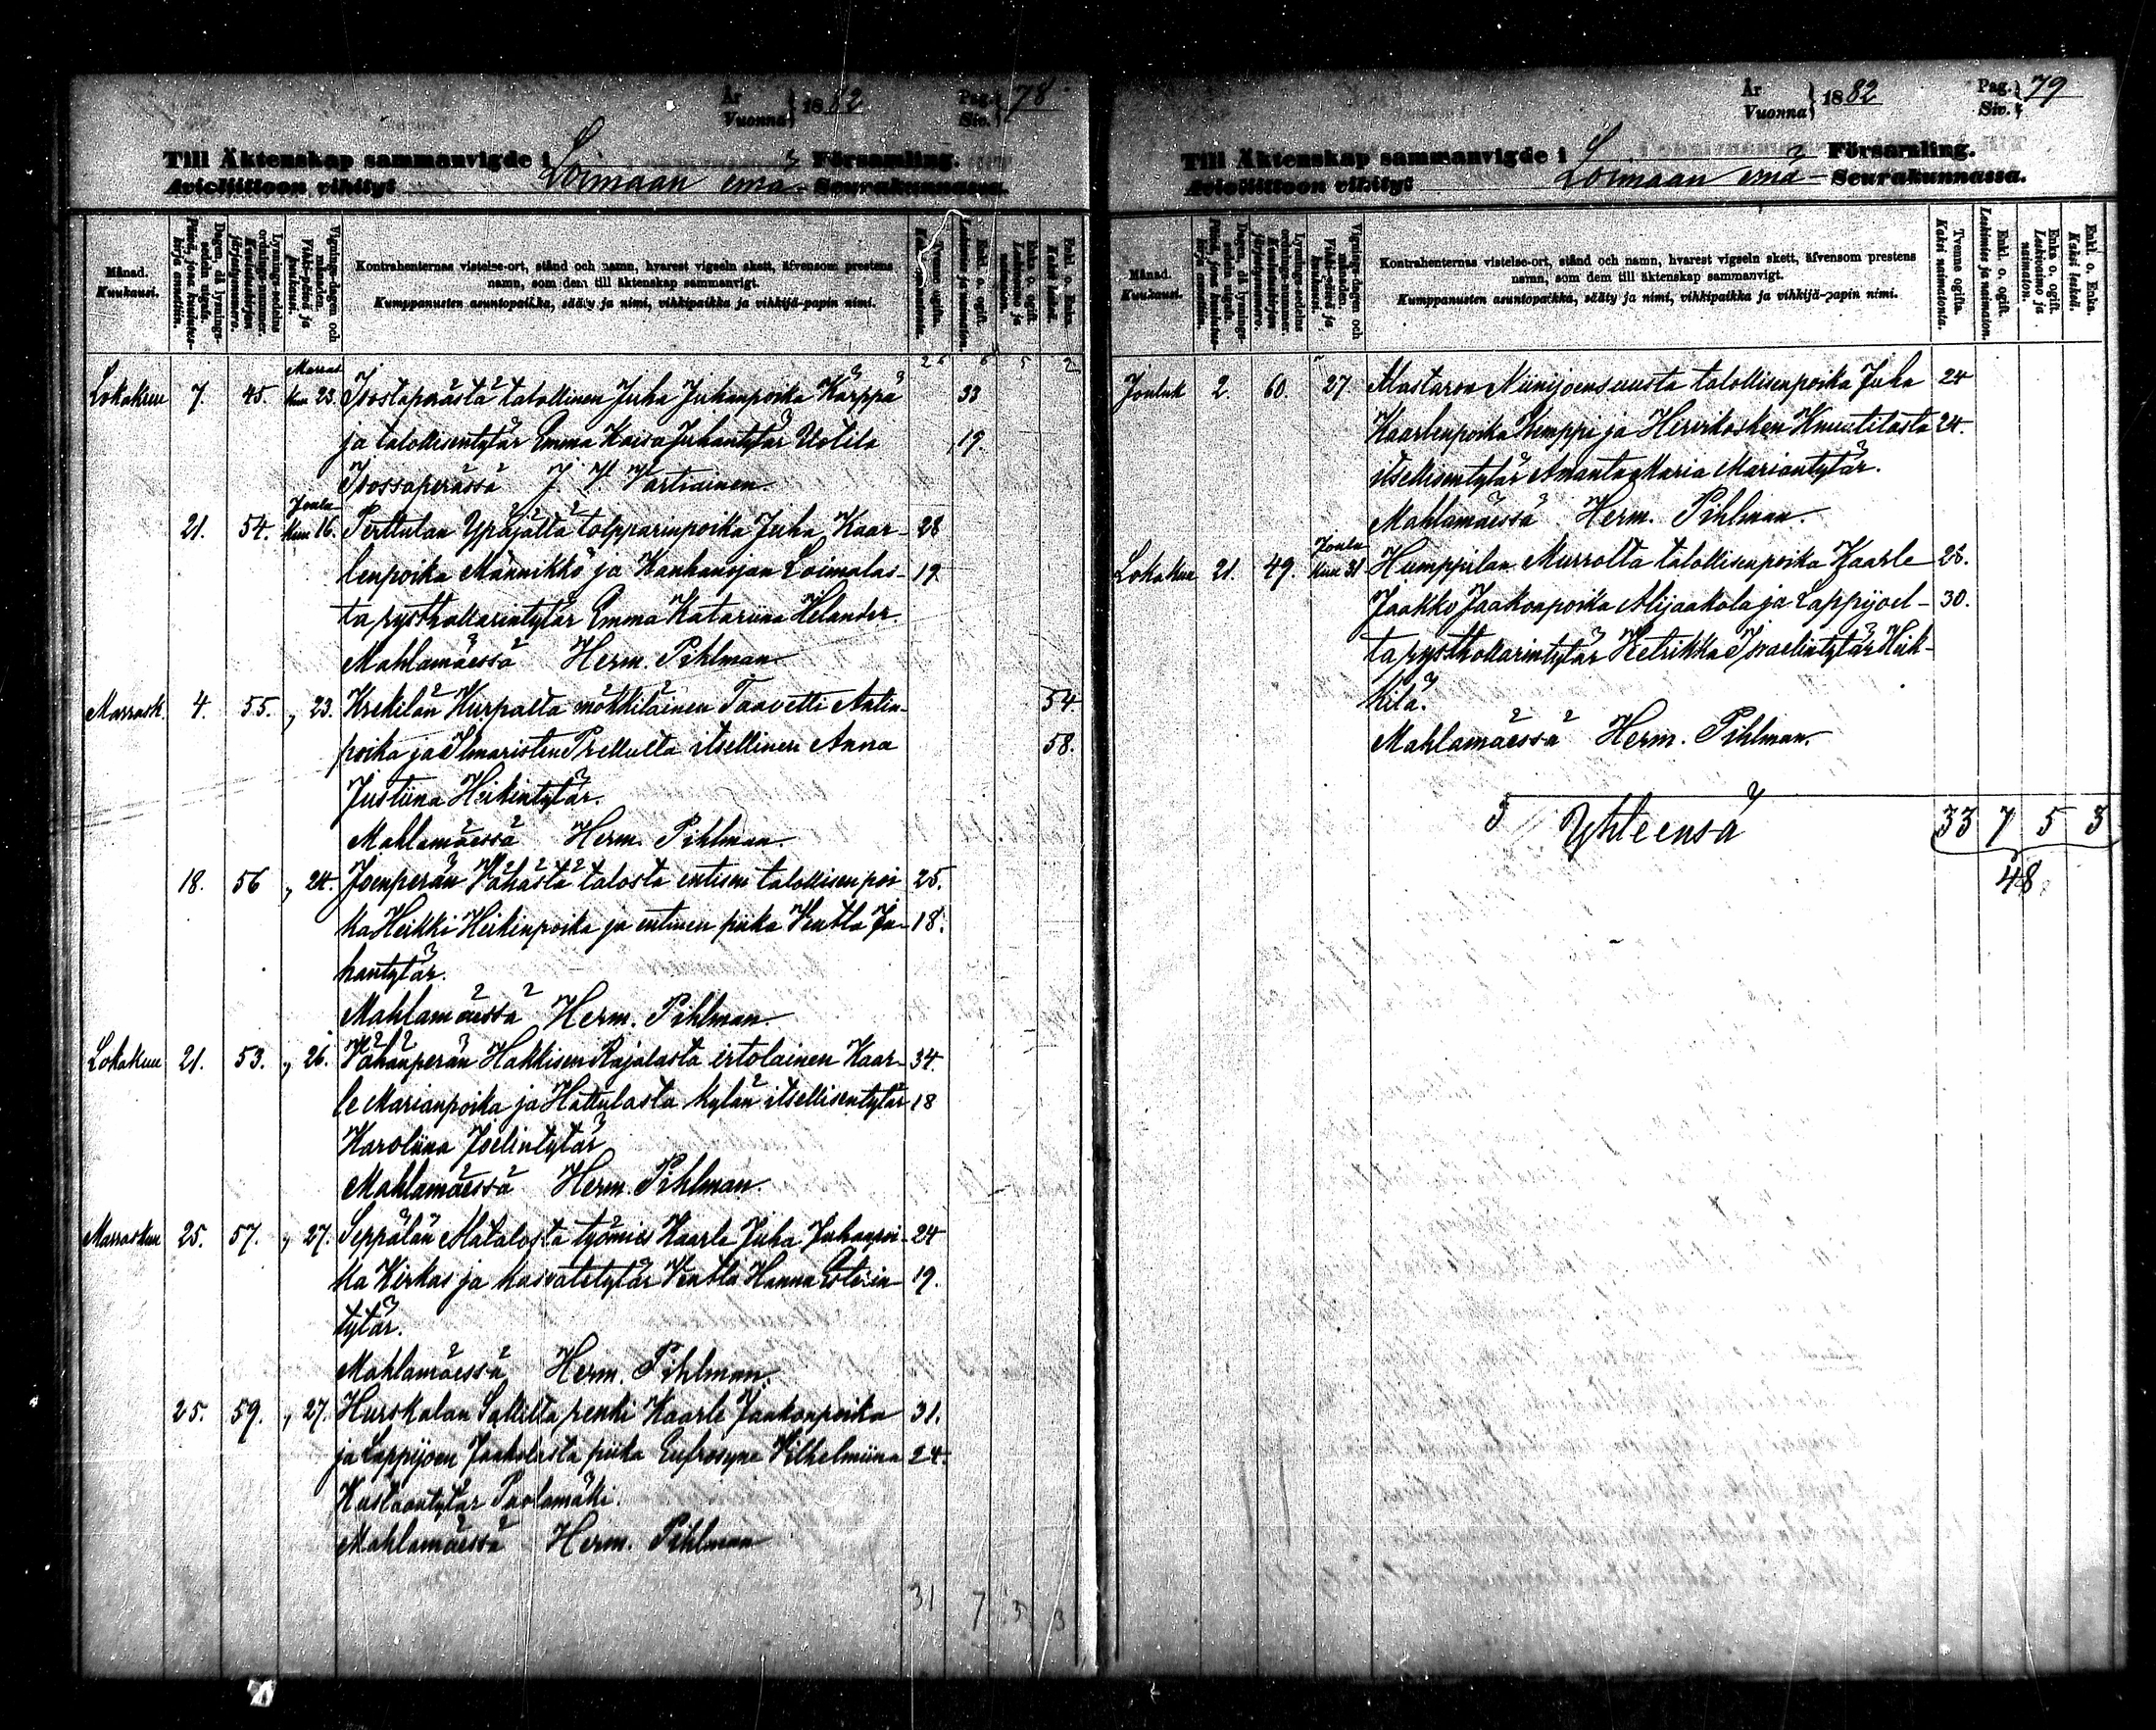 År
Vuonna } 1882 Pag.
Siv. } 78
Till Äktenskap sammanvigde i Församling.
Avioliittoon vihityt Loimaan emä- Seurakunnassa.
Månad.
Kuukausi.
Kontrahenternas vistelse-ort, stånd och namn, hvarest vigseln skett, äfvensom prestens
namn, som dem till äktenskap sammanvigt.
Kumppanusten asuntopaikka, sääty ja nimi, vihkipaikka ja vihkijä-papin nimi.
Marras
Lokakuu 7. 45. kuu 23. Isostaperästä talollinen Juha Juhanpoika Kärppä 33
ja talollisentytär Emma Kaisa Juhantytär Uotila 19.
Isossaperässä J. V. Vartiainen.
Joulu
21. 54. kuu 16. Perttulan Ypäjältä tolpparinpoika Juha Kaar- 28
lenpoika Männikkö ja Kauhanojan Loimalas- 19
ta rysthollarintytär Emma Katariina Helander.
Mahlamäessä Herm. Pihlman.
Marrask. 4. 55. „ 23. Krekilän Kurpalta mökkiläinen Taavetti Antin- 54
poika ja Ilmaristen Prellulta itsellinen Anna 58.
Justiina Heikintytär.
Mahlamäessä Herm. Pihlman.
18. 56 „ 24. Joenperän Vähästä talosta entisen talollisen poi 25.
ka Heikki Heikinpoika ja entinen piika Ju- 18.
hantytär.
Mahlamäessä Herm. Pihlman.
Lokakuu 21. 53. „ 26. Vähänperän Hakkisen Rajalasta irtolainen Kaar- 34.
le Marianpoika ja Hattulasta kylän itsellisentytär 18
Karoliina Joelintytär
Mahlamäessä Herm. Pihlman.
Marraskuu 25. 57. „ 27. Seppälän Alitalosta työmies Kaarle Juha Juhanpoi- 24
ka Kirkas ja kasvatetytär Hanna 19.
tytär.
Mahlamäessä Herm. Pihlman.
25. 59. „ 27. Hurskalan Sallilta renki Kaarle Jaakonpoika 31.
ja Lappijoen Jaakolasta piika Eufrosyne Vilhelmiina 24.
Kustaantytär Palomäki.
Mahlamäessä Herm. Pihlman
31 7 5 3
År
Vuonna } 1882 Pag.
Siv. } 79
Till Äktenskap sammanvigde i Församling.
Avioliittoon vihityt Loimaan emä- Seurakunnassa.
Månad.
Kuukausi.
Kontrahenternas vistelse-ort, stånd och namn, hvarest vigseln skett, äfvensom prestens
namn, som dem till äktenskap sammanvigt.
Kumppanusten asuntopaikka, sääty ja nimi, vihkipaikka ja vihkijä-papin nimi.
Jouluk 2. 60. 27. Alastaron Niinijoensuusta talollisenpoika Juha 24
Kaarlenpoika Kemppi ja Hirvikosken Knuutilasta 24.
itsellisentytär Amanta Maria Mariantytär.
Mahlamäessä Herm. Pihlman.
Joulu
Lokakuu 21. 49. kuu 31 Humppilan Murrolta talollisenpoika Kaarle 28.
Jaakko Jaakonpoika Alijaakola ja Lappijoel- 30.
ta rysthollarintytär Hetrikka Israelintytär Heik-
kilä.
Mahlamäessä Herm. Pihlman.
Yhteensä 33 7 5 3
48